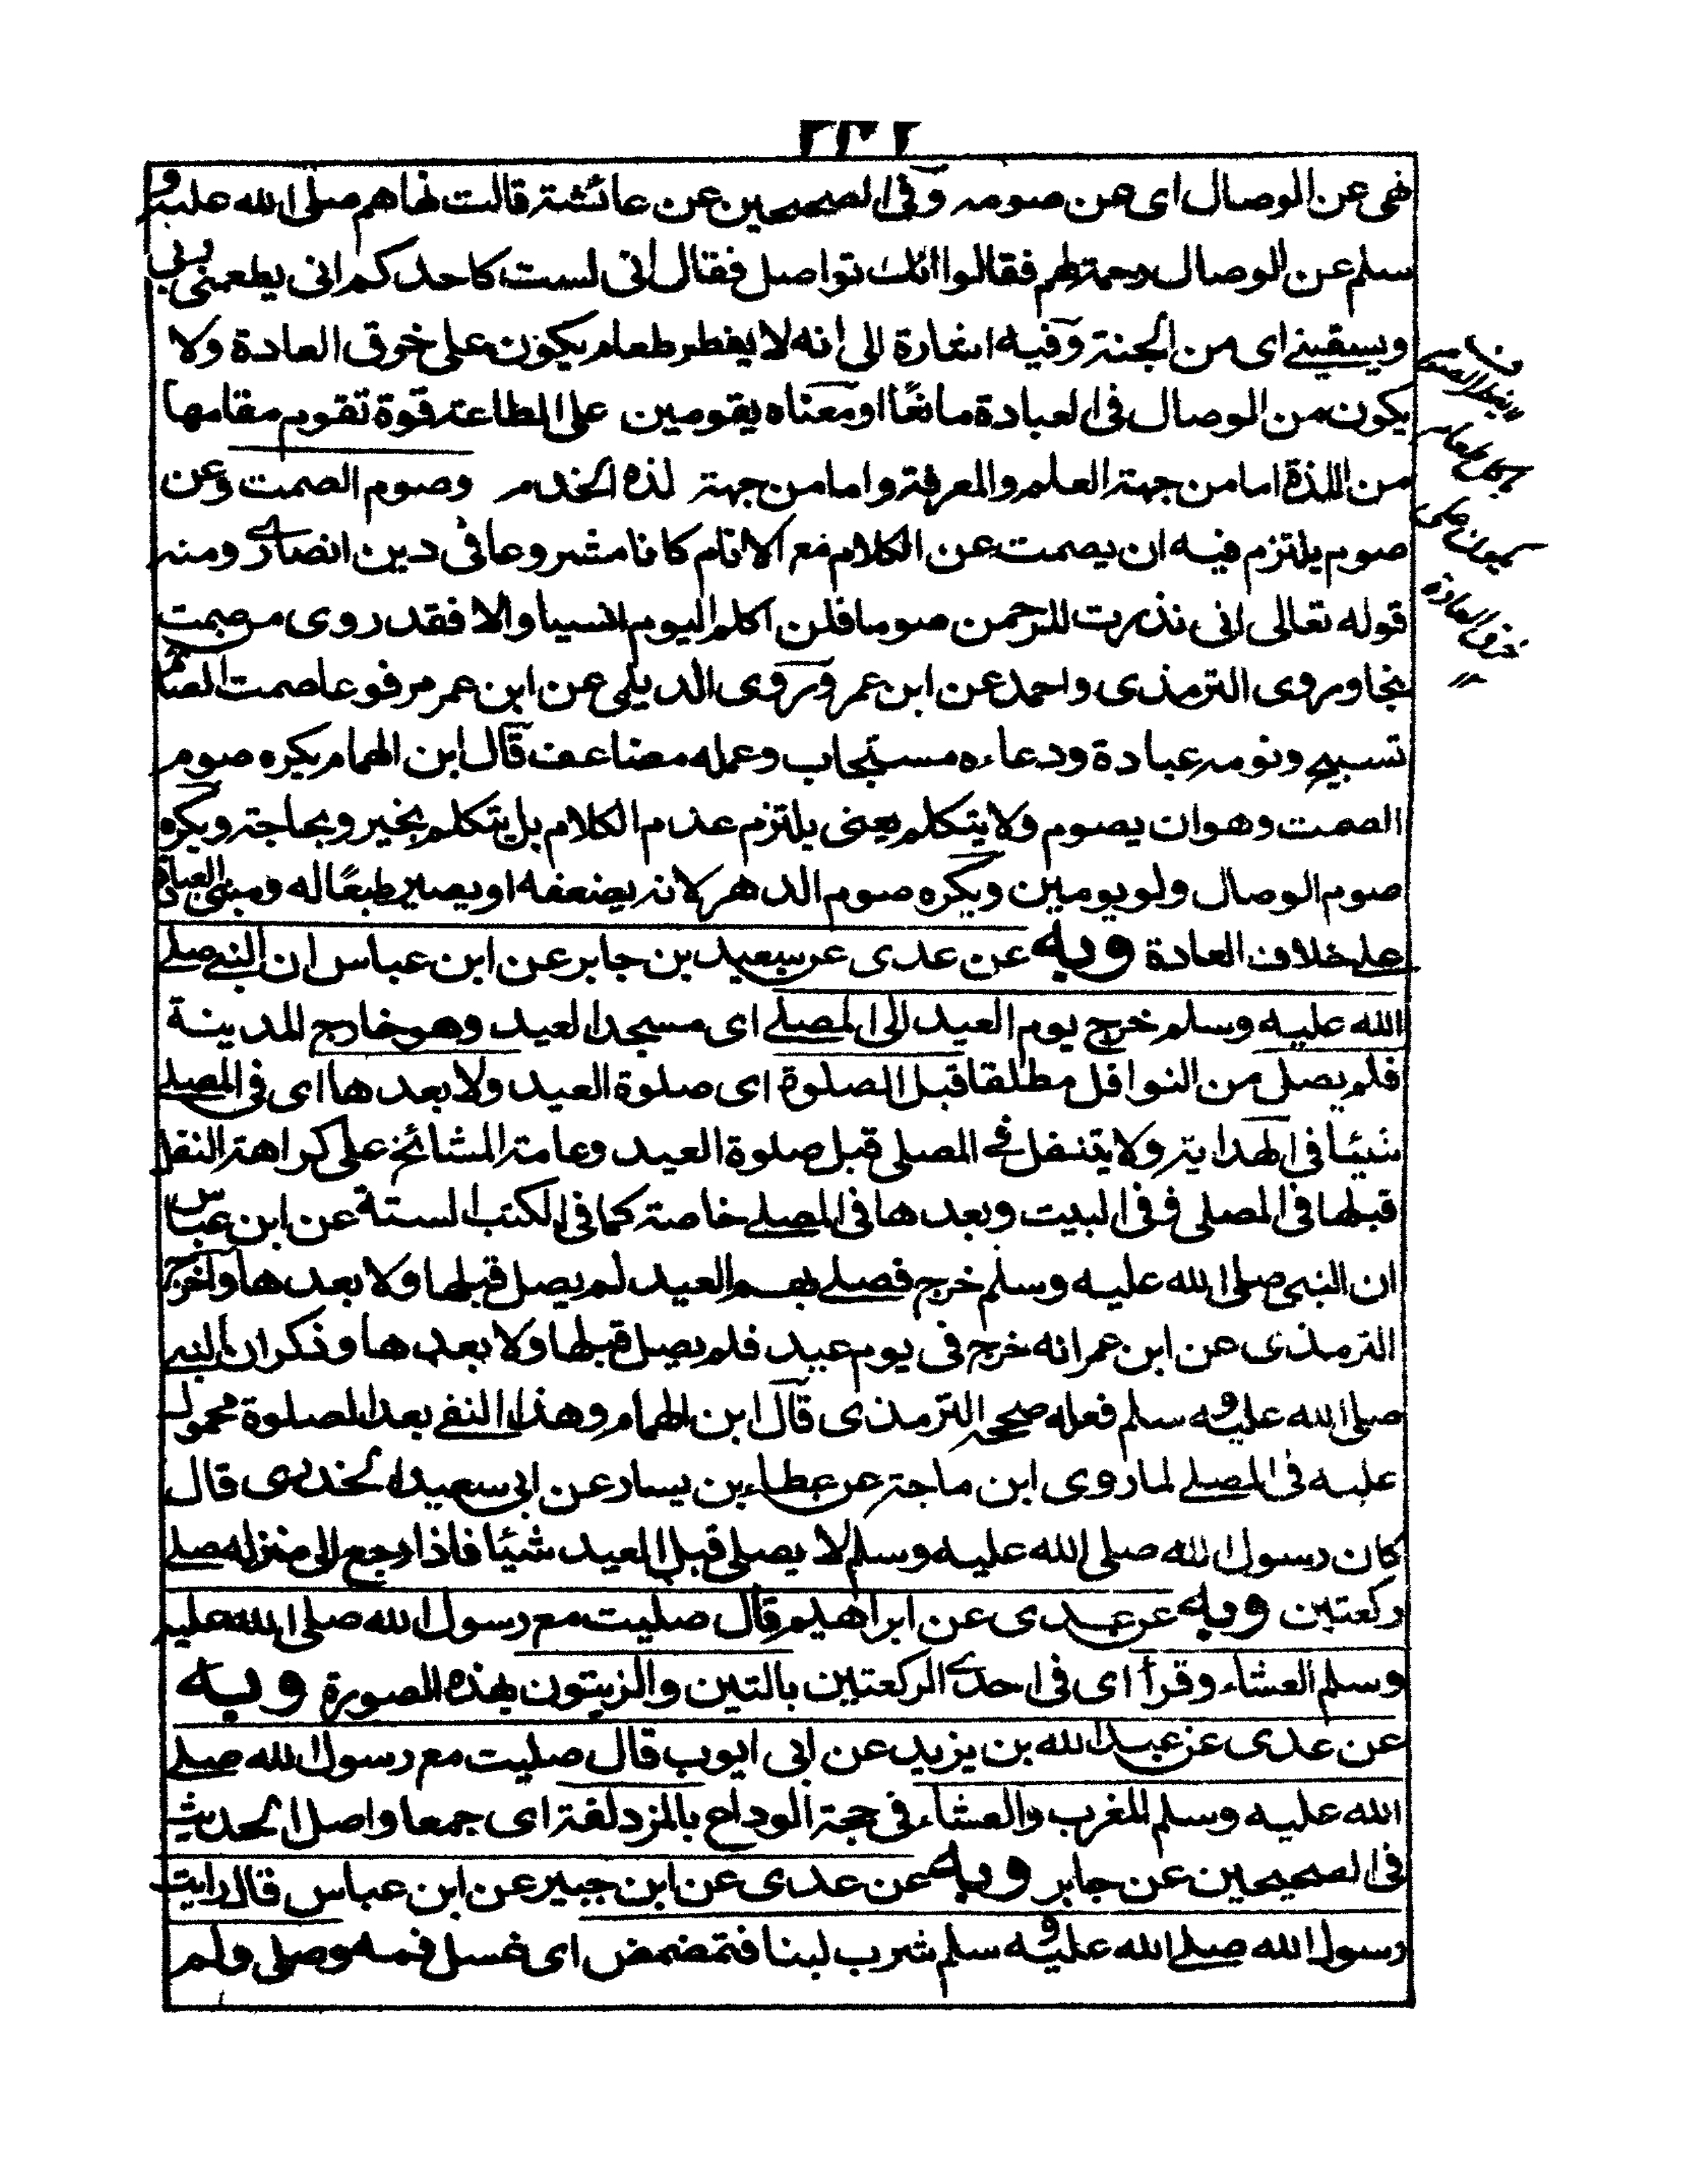 نهى عن الوصال اى عن صومه وفى الصحيحين عن عائشة قالت نهاهم صلى الله عليه و
سلم عن الوصال رحمة لهم فقالوا انك تواصل فقال انى لست كاحدكم انى يطعمنى ربى
ويسقينے اى من الجنة وفيه اشارة الى انه لا يفطر طعام يكون على خرق العادة ولا
يكون من الوصال فى العبادة مانعًا او معناه يقومين على الطاعة قوة تقوم مقامها
من اللذة اما من جهة العلم والمعرفة واما من جهة لذة الخدمة وصوم الصمت وعن
صوم يلتزم فيه ان يصمت عن الكلام مع الانام كانا مشروعا فى دين انصارى ومنه
قوله تعالى انى نذرت للرحمن صوما فلن اكلم اليوم انسيا والا فقد روى من صمت
نجا وروى الترمذى واحمد عن ابن عمر وروى الديلمى عن ابن عمر مرفوعا صمت الصائم
تسبيح ونومه عبادة ودعاءه مستجاب وعمله مضاعف قال ابن الهمام يكره صوم
الصمت وهو ان يصوم ولا يتكلم يعنى يلتزم عدم الكلام بل يتكلم بخير وبحاجة ويكره
صوم الوصال ولو يومين ويكره صوم الدهر لانه يضعفه او يصير طبعًا له ومبنى العبادة
على خلاف العادة وبه عن عدى عن سعيد بن جابر عن ابن عباس ان النبى صلے
الله عليه وسلم خرج يوم العيد الى المصلے اى مسجد العيد وهو خارج المدينة
فلم يصلى من النوافل مطلقا قبل الصلوة اى صلوة العيد ولا بعدها اى فى المصلے
شيئا فى الهداية ولا يتنفل فى المصلى قبل صلوة العيد وعامة المشائخ على كراهة النفل
قبلها فى المصلى ففى البيت وبعدها فى المصلے خاصة كما فى الكتب الستة عن ابن عباس
ان النبى صلى الله عليه وسلم خرج فصلے بهم العيد لم يصل قبلها ولا بعدها واخرج
الترمذى عن ابن عمر انه خرج فى يوم عيد فلم يصل قبلها ولا بعدها وذكر ان النبے
صلى الله عليه وسلم فعله صححه الترمذى قال ابن الهمام وهذا النفے بعد الصلوة محمول
عليه فى المصلے لما روى ابن ماجة عن عطاء بن يسار عن ابى سعيد الخدرى قال
كان رسول الله صلى الله عليه وسلم لا يصلى قبل العيد شيئا فاذا رجع الى منزله صلے
ركعتين وبه عن عدى عن ابراهيم قال صليت مع رسول الله صلى الله عليه
وسلم العشاء وقرأ اى فى احدى الركعتين بالتين والزيتون بهذه الصورة وبه
عن عدى عن عبد الله بن يزيد عن ابى ايوب قال صليت مع رسول الله صلے
الله عليه وسلم المغرب والعشاء فى حجة الوداع بالمزدلفة اى جمعا واصل الحديث
فى الصحيحين عن جابر وبه عن عدى عن ابن جبير عن ابن عباس قال رايت
رسول الله صلے الله عليه وسلم شرب لبنا فتمضمض اى غسل فمه وصلى ولم